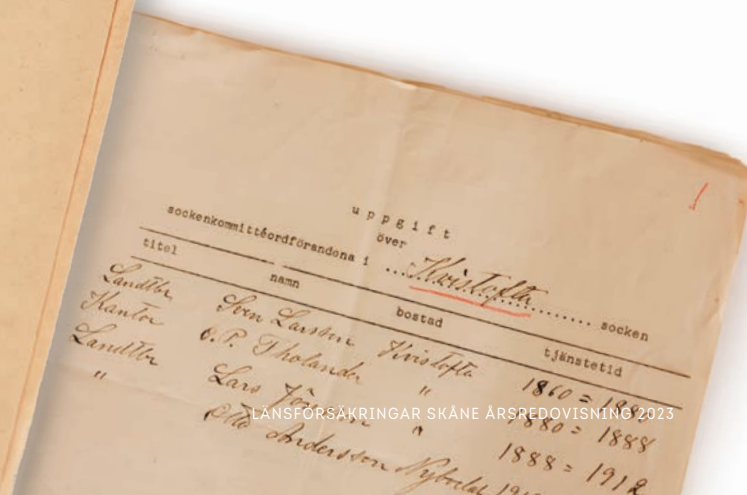 1
uppgift
över
sockenkommittéordförandena i Kvistofta socken
titel namn bostad tjänstetid
Landtbr Sven Larsson Kvistofta 1860 =
Kantor O.P. Tholander " 1880 = 1888
Landtbr Lars " 1888 = 1912
" Otto Andersson
LÄNSFÖRSÄKRINGAR SKÅNE ÅRSREDOVISNING 2023